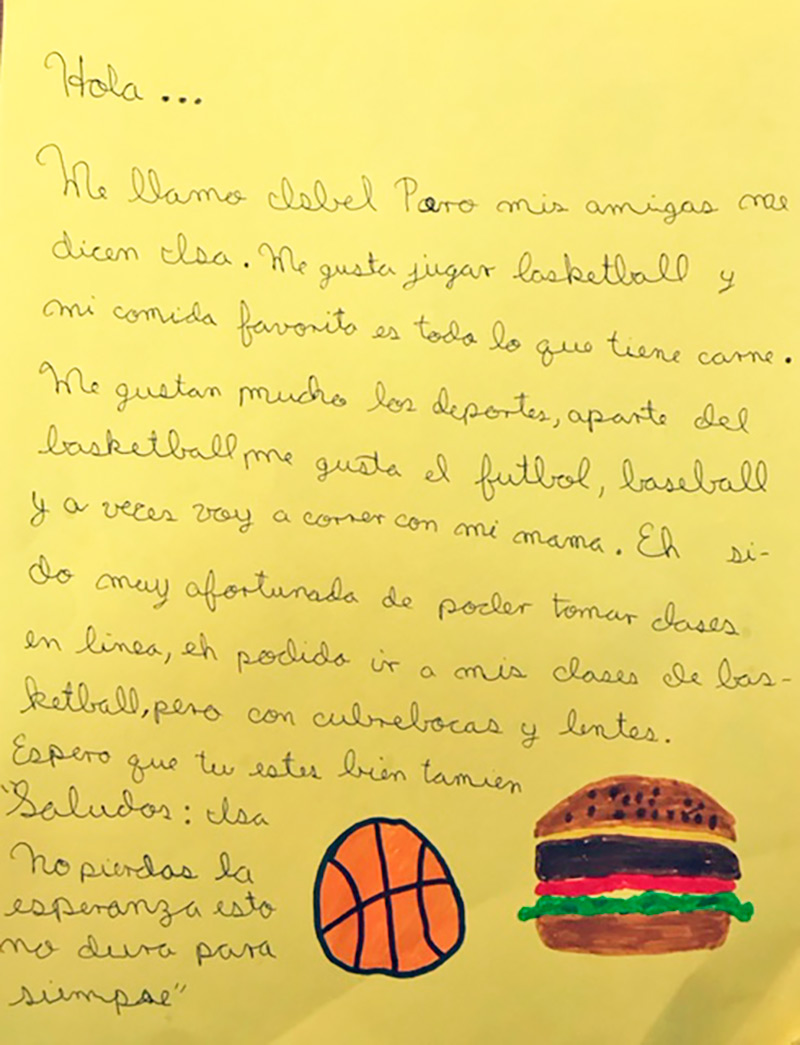 Hola...
Me llamo Isbel Pero mis amigas me
dicen Isa. Me gusta jugar basketball y
mi comida favorita es todo lo que tiene carne.
Me gustan mucho los deportes, aparte del
basketball, me gusta el futbol, baseball
y a veces voy a correr con mi mama. Eh si-
do muy afortunada de poder tomar clases
en linea, eh podido ir a mis clases de bas-
ketball, pero con cubrebocas y lentes.
Espero que tu estes bien tamien
"Saludos: Isa
No pierdas la
esperanza esto
no dura para
siempre"